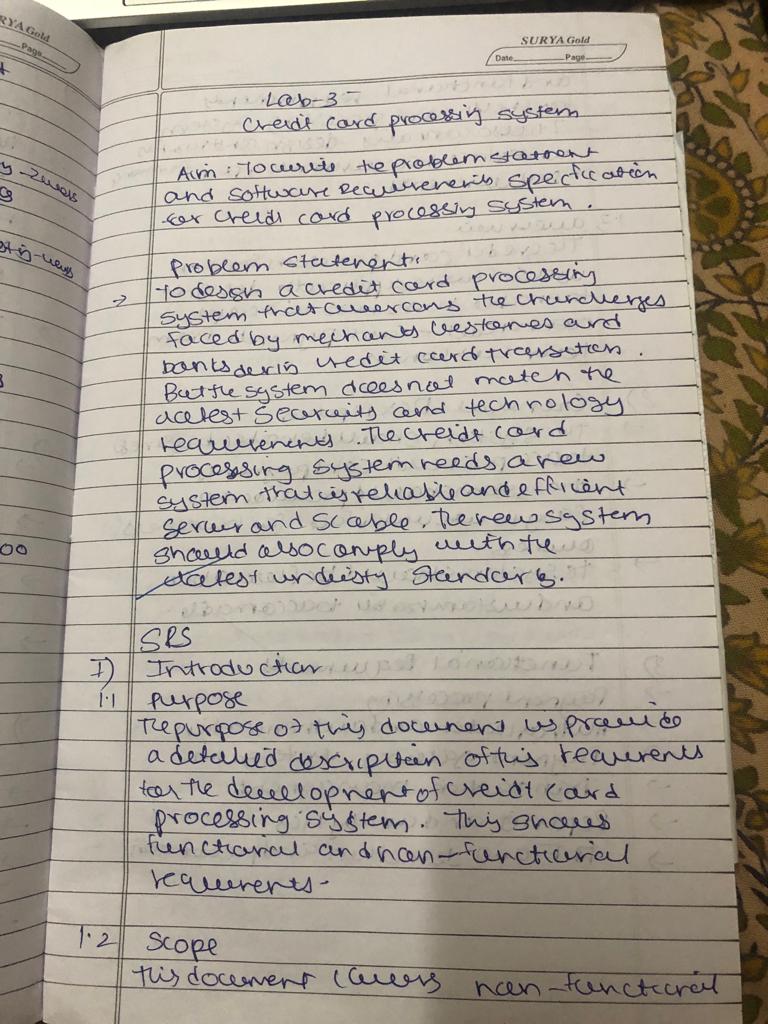 RYA Gold
Page
SURYA Gold
Date Page
Lab-3-
Credit card processing system
Aim : To write the problem statement
and software requirements specification
for credit card processing system.
Problem statement:
→ To design a credit card processing
system that overcoms the challenges
faced by merchants customes and
banks durin credit card transaction.
But the system does not match the
latest security and technology
requirements. The credit card
processing system needs a new
system that is reliable and efficient
secur and scable. The new system
should also comply with the
latest industy standards.
SRS
I) Introduction
1.1 Purpose
The purpose of this document is provide
a detailed description of this requirents
for the development of credit card
processing system. This shows
functional and non-functional
requirents-
1.2 Scope
This document covers non-functional
00